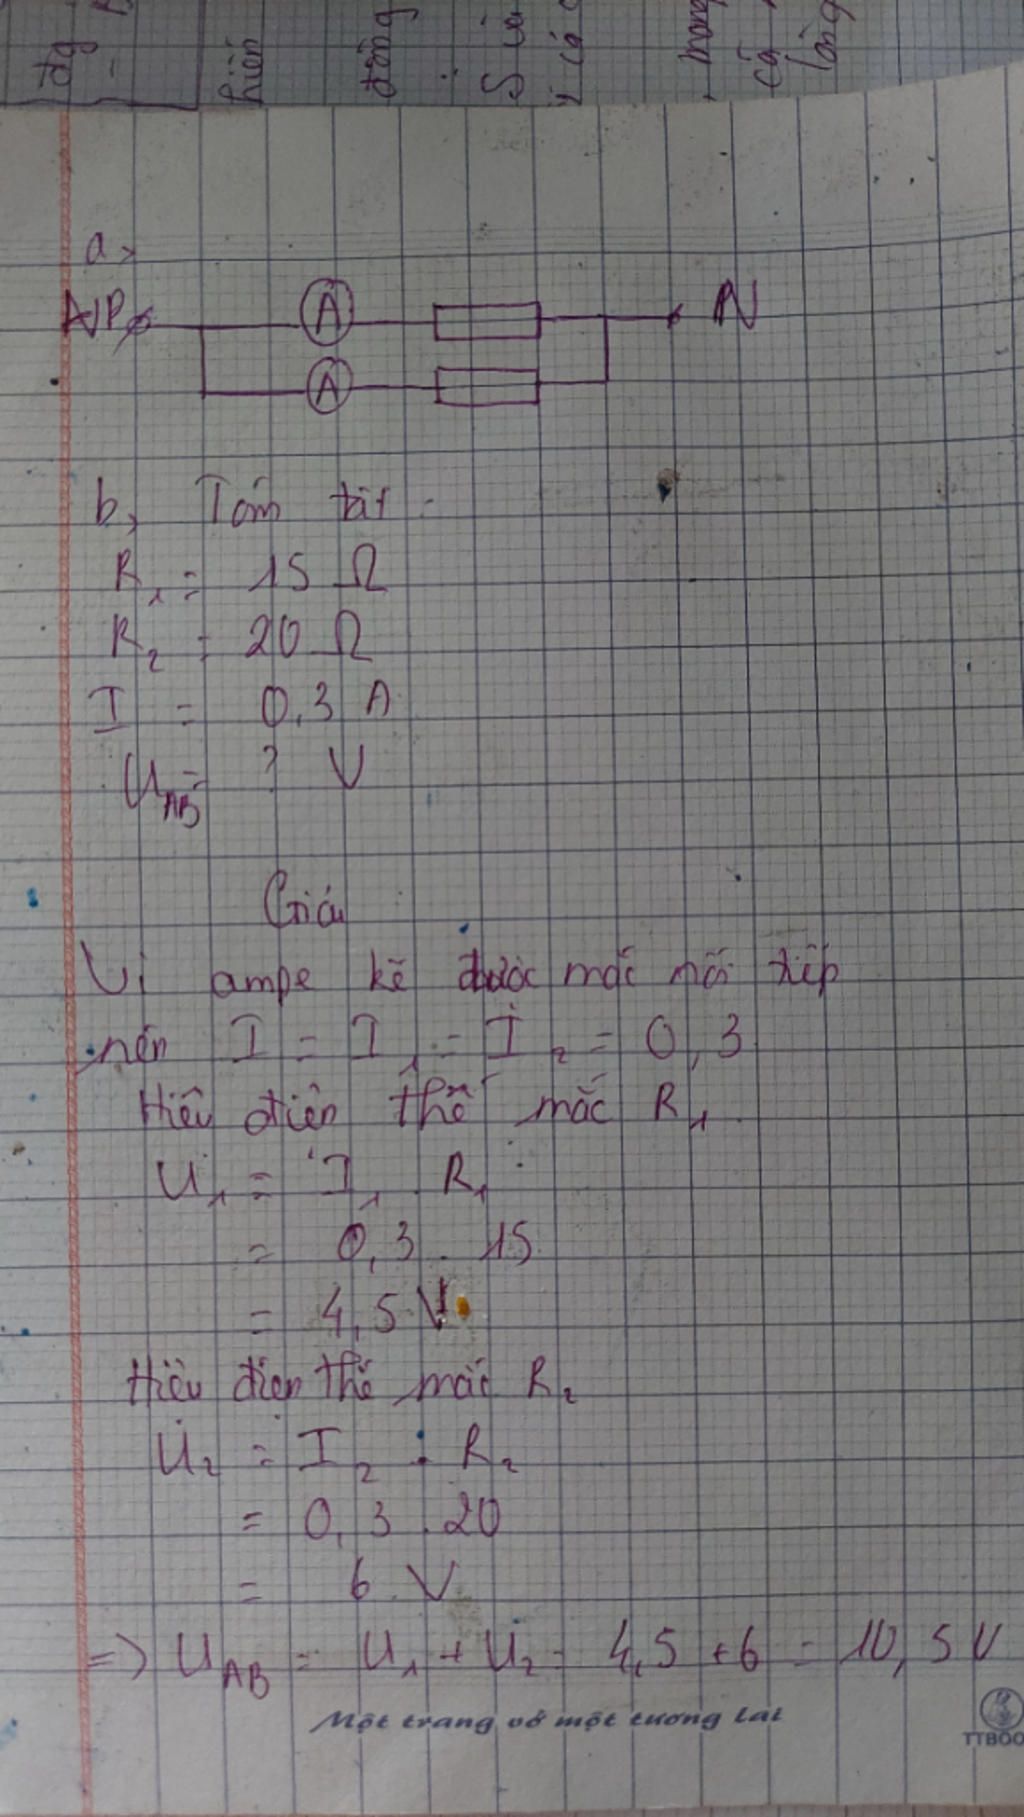 a,
A
N
A
b, Tóm tắt
R1 = 15 Ω
R2 = 20 Ω
I = 0,3 A
UAB = ? V
Giải
Vì ampe kế được mắc nối tiếp
nên I = I1 = I2 = 0,3
Hiệu điện thế mắc R1
U1 = I1 . R1
= 0,3 . 15
= 4,5 V
Hiệu điện thế mắc R2
U2 = I2 . R2
= 0,3 . 20
= 6 V
=> UAB = U1 + U2 = 4,5 + 6 = 10,5 V
Một trang vở một tương lai